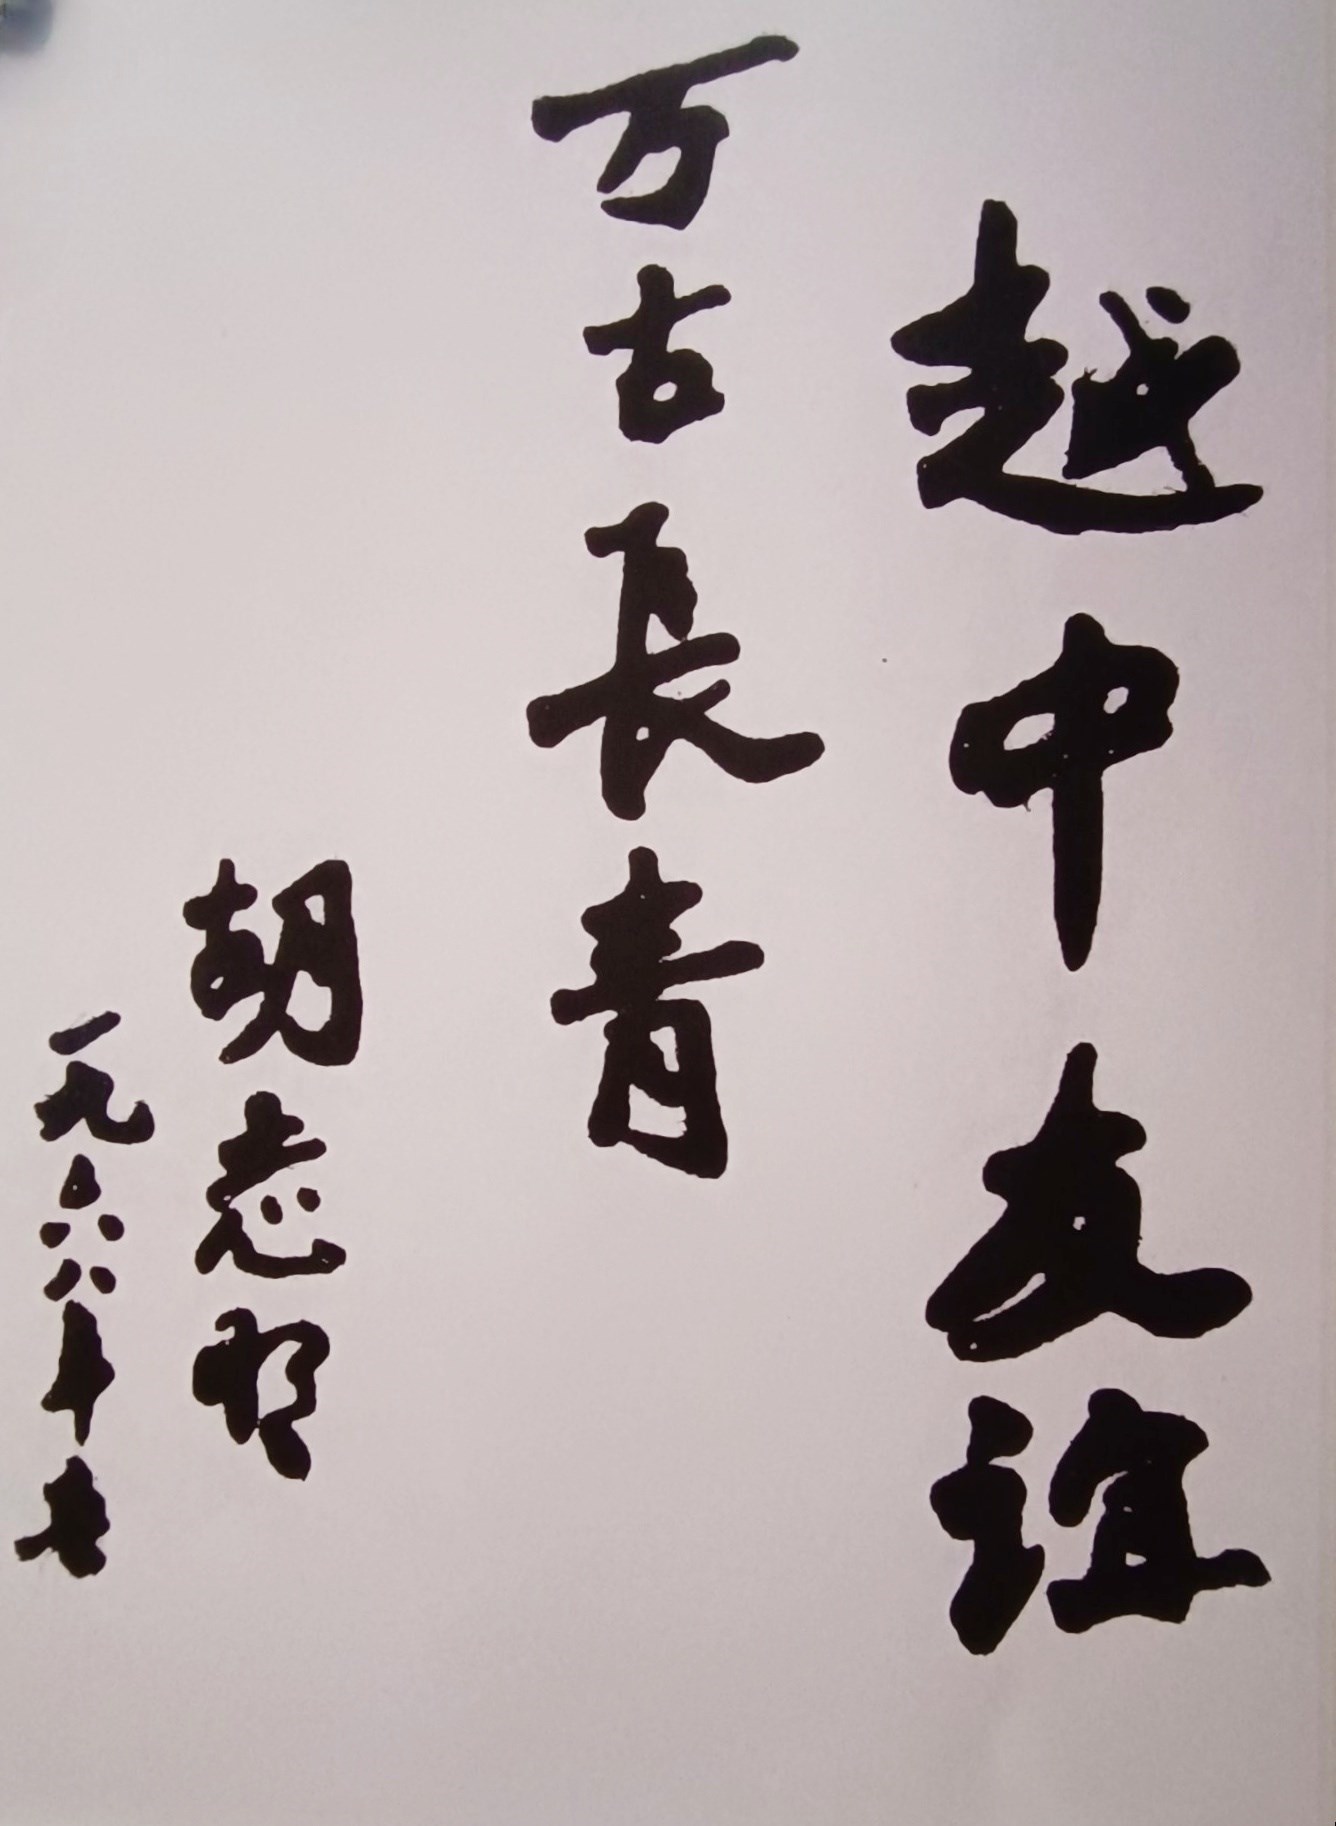 越中友誼
万古長青
胡志明
一九六八年